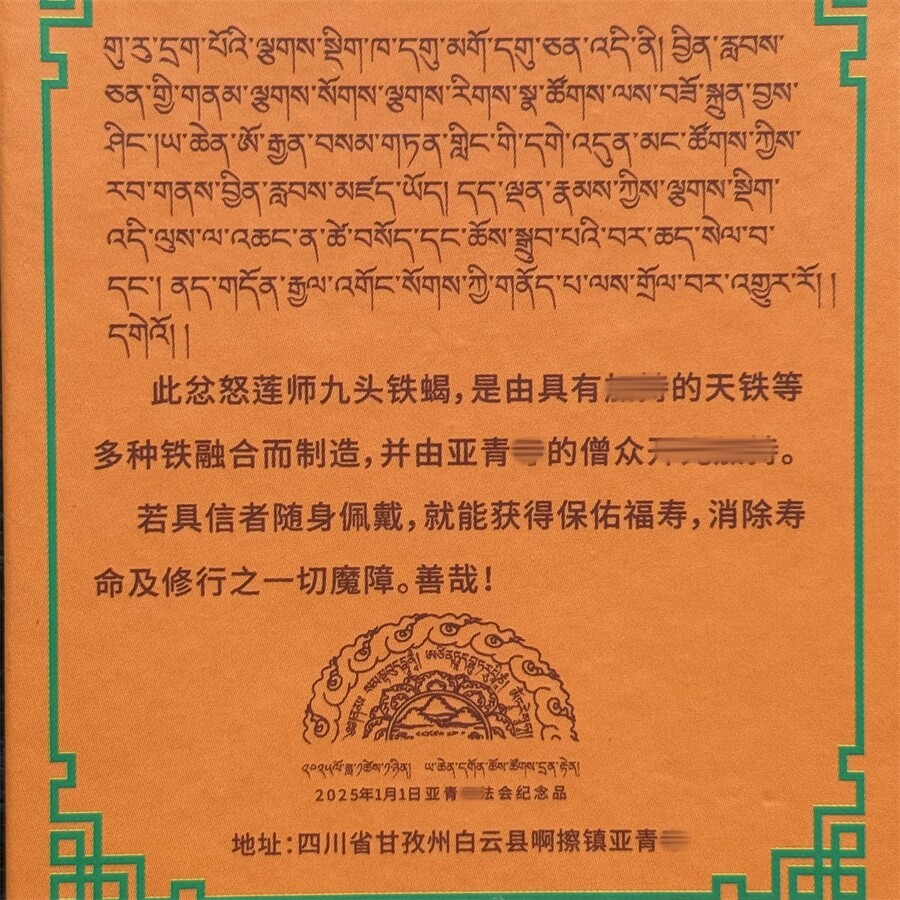 གུ་རུ་དྲག་པོའི་ལྕགས་སྡིག་ཁ་དགུ་མགོ་དགུ་ཅན་འདི་ནི། བྱིན་རླབས་
ཅན་གྱི་གནམ་ལྕགས་སོགས་ལྕགས་རིགས་སྣ་ཚོགས་ལས་བཟོ་སྐྲུན་བྱས་
ཤིང་། ཡ་ཆེན་ཨོ་རྒྱན་བསམ་གཏན་གླིང་གི་དགེ་འདུན་མང་ཚོགས་ཀྱིས་
རབ་གནས་བྱིན་རླབས་མཛད་ཡོད། དད་ལྡན་རྣམས་ཀྱིས་ལྕགས་སྡིག་
འདི་ལུས་ལ་འཆང་ན་ཚེ་བསོད་དང་ཆོས་སྒྲུབ་པའི་བར་ཆད་སེལ་བ་
དང་། ནད་གདོན་རྒྱལ་འགོང་སོགས་ཀྱི་གནོད་པ་ལས་གྲོལ་བར་འགྱུར་རོ། །
དགེའོ། །
此忿怒莲师九头铁蝎，是由具有的天铁等
多种铁融合而制造，并由亚青的僧众。
若具信者随身佩戴，就能获得保佑福寿，消除寿
命及修行之一切魔障。善哉！
༢༠༢༥ལོའི་ཟླ་༡ཚེས་༡ཉིན། ཡ་ཆེན་དགོན་ཆོས་ཚོགས་དྲན་རྟེན།
2025年1月1日亚青法会纪念品
地址：四川省甘孜州白云县啊擦镇亚青